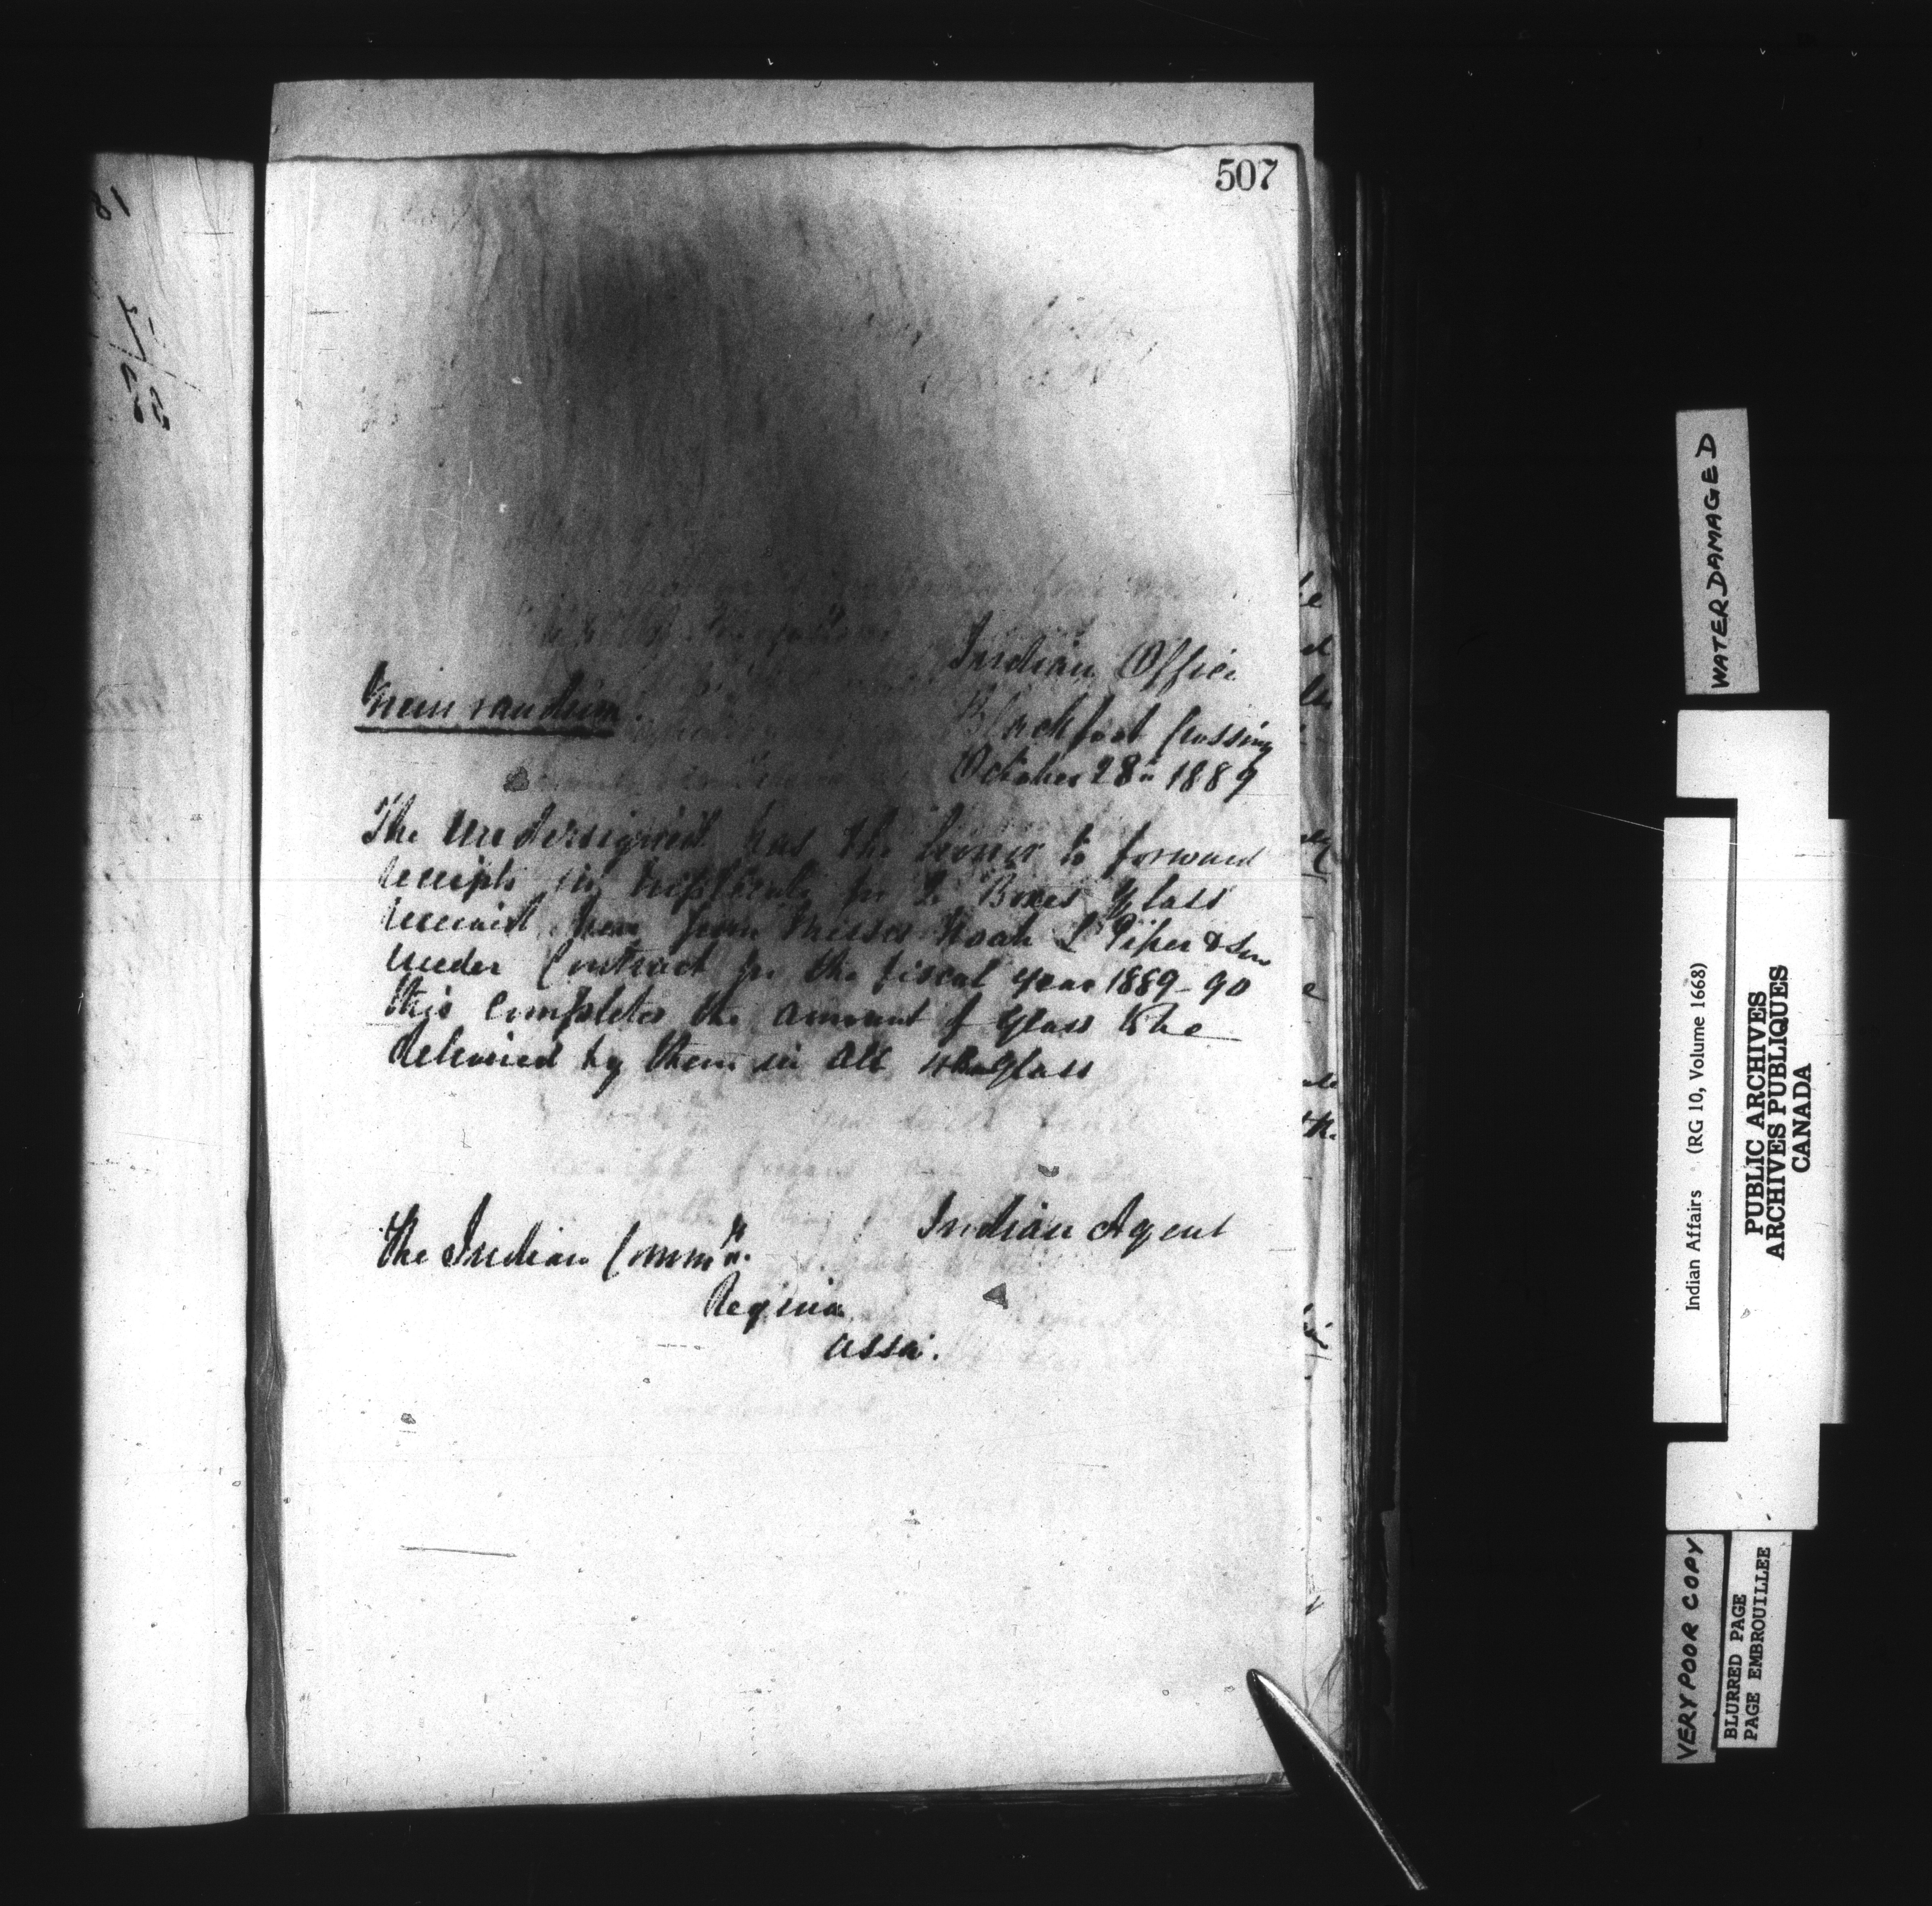 507
Indian Office
Memorandum.
Blackfoot Crossing
October 28th 1889
The undersigned has the honor to forward
receipts in triplicate for 2 Boxes Glass
received here from Messrs Noah L Piper & Son
under Contract for the fiscal year 1889-90
this completes the amount of Glass to be
delivered by them in all 4 Bxs Glass
Indian Agent
The Indian Commr.
Regina
Assa.
WATER DAMAGED
Indian Affairs (RG 10, Volume 1668)
PUBLIC ARCHIVES
ARCHIVES PUBLIQUES
CANADA
VERY POOR COPY
BLURRED PAGE
PAGE EMBROUILLEE